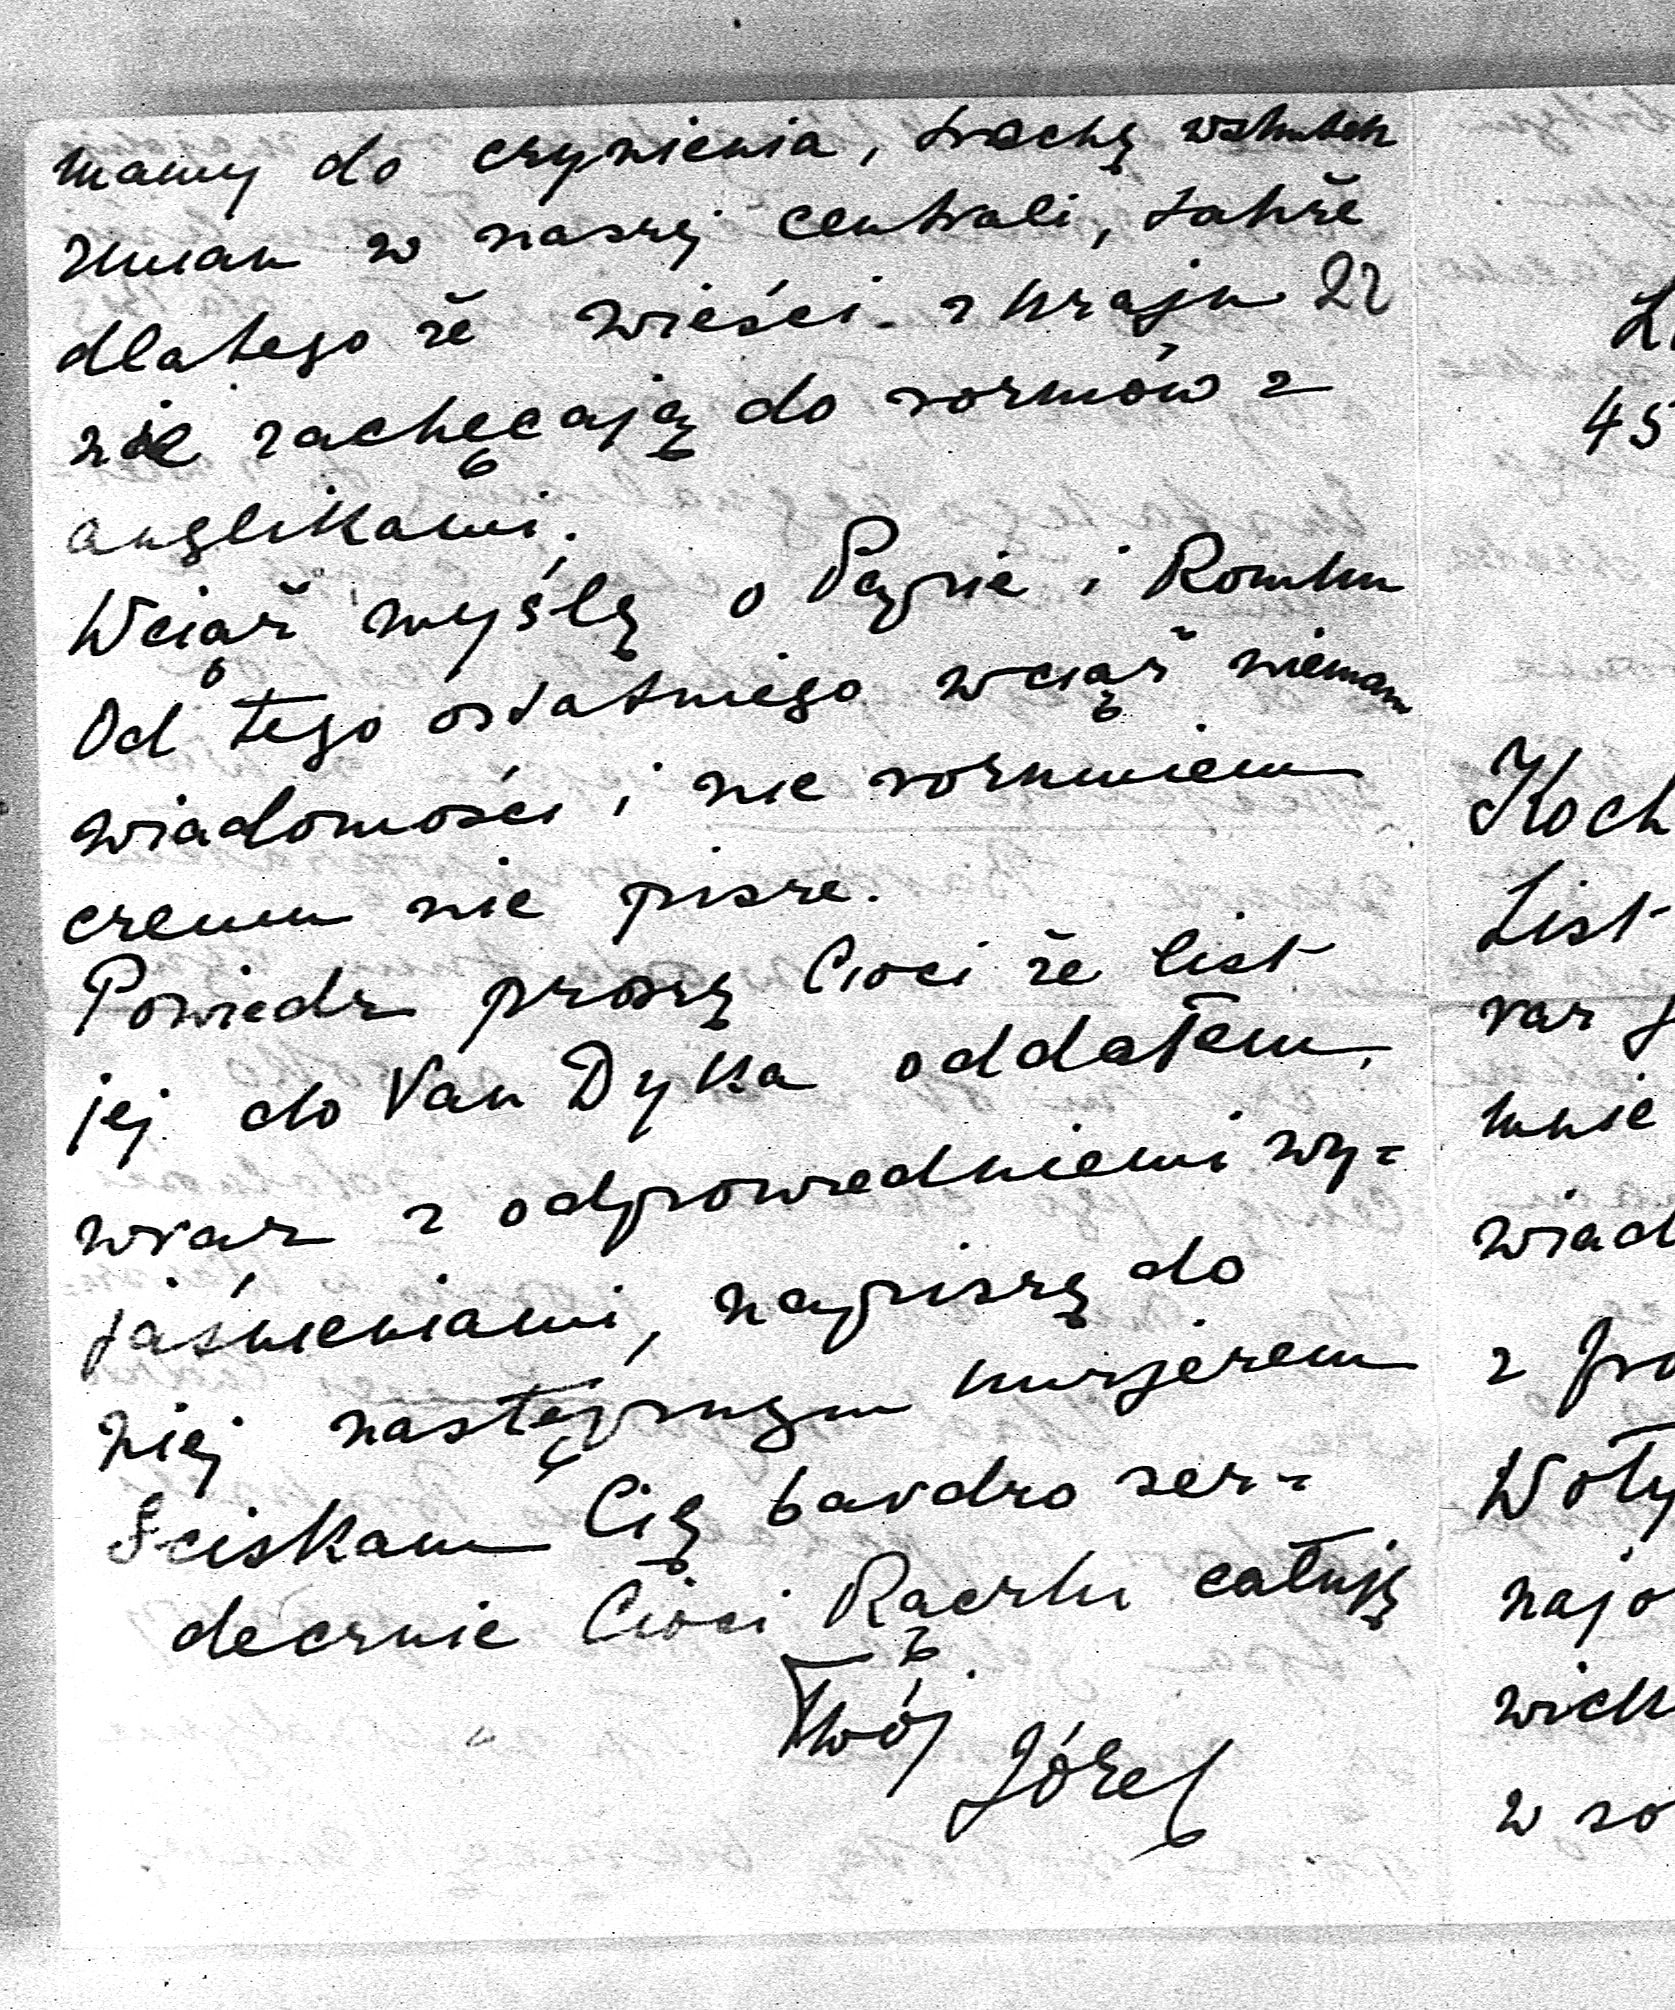 mamy do czynienia, trochę wskutek
zmian w naszej centrali, także
dlatego że wieści z kraju 22
nie zachęcają do rozmów z
anglikami.
Wciąż myślę o Pepie i Romku
Od tego ostatniego wciąż niemam
wiadomości i nie rozumiem
czemu nie pisze.
Powiedz proszę Cioci że list
jej do Van Dyka oddałem,
wraz z odpowiedniemi wy=
jaśnieniami, napiszę do
niej następnym kurjerem
Sciskam Cię bardzo ser=
decznie Cioci Rączki całuję
Twój
Józef
45
Koch
List
raz
mnie
wiad
z pro
Woły
najo
wiek
w so